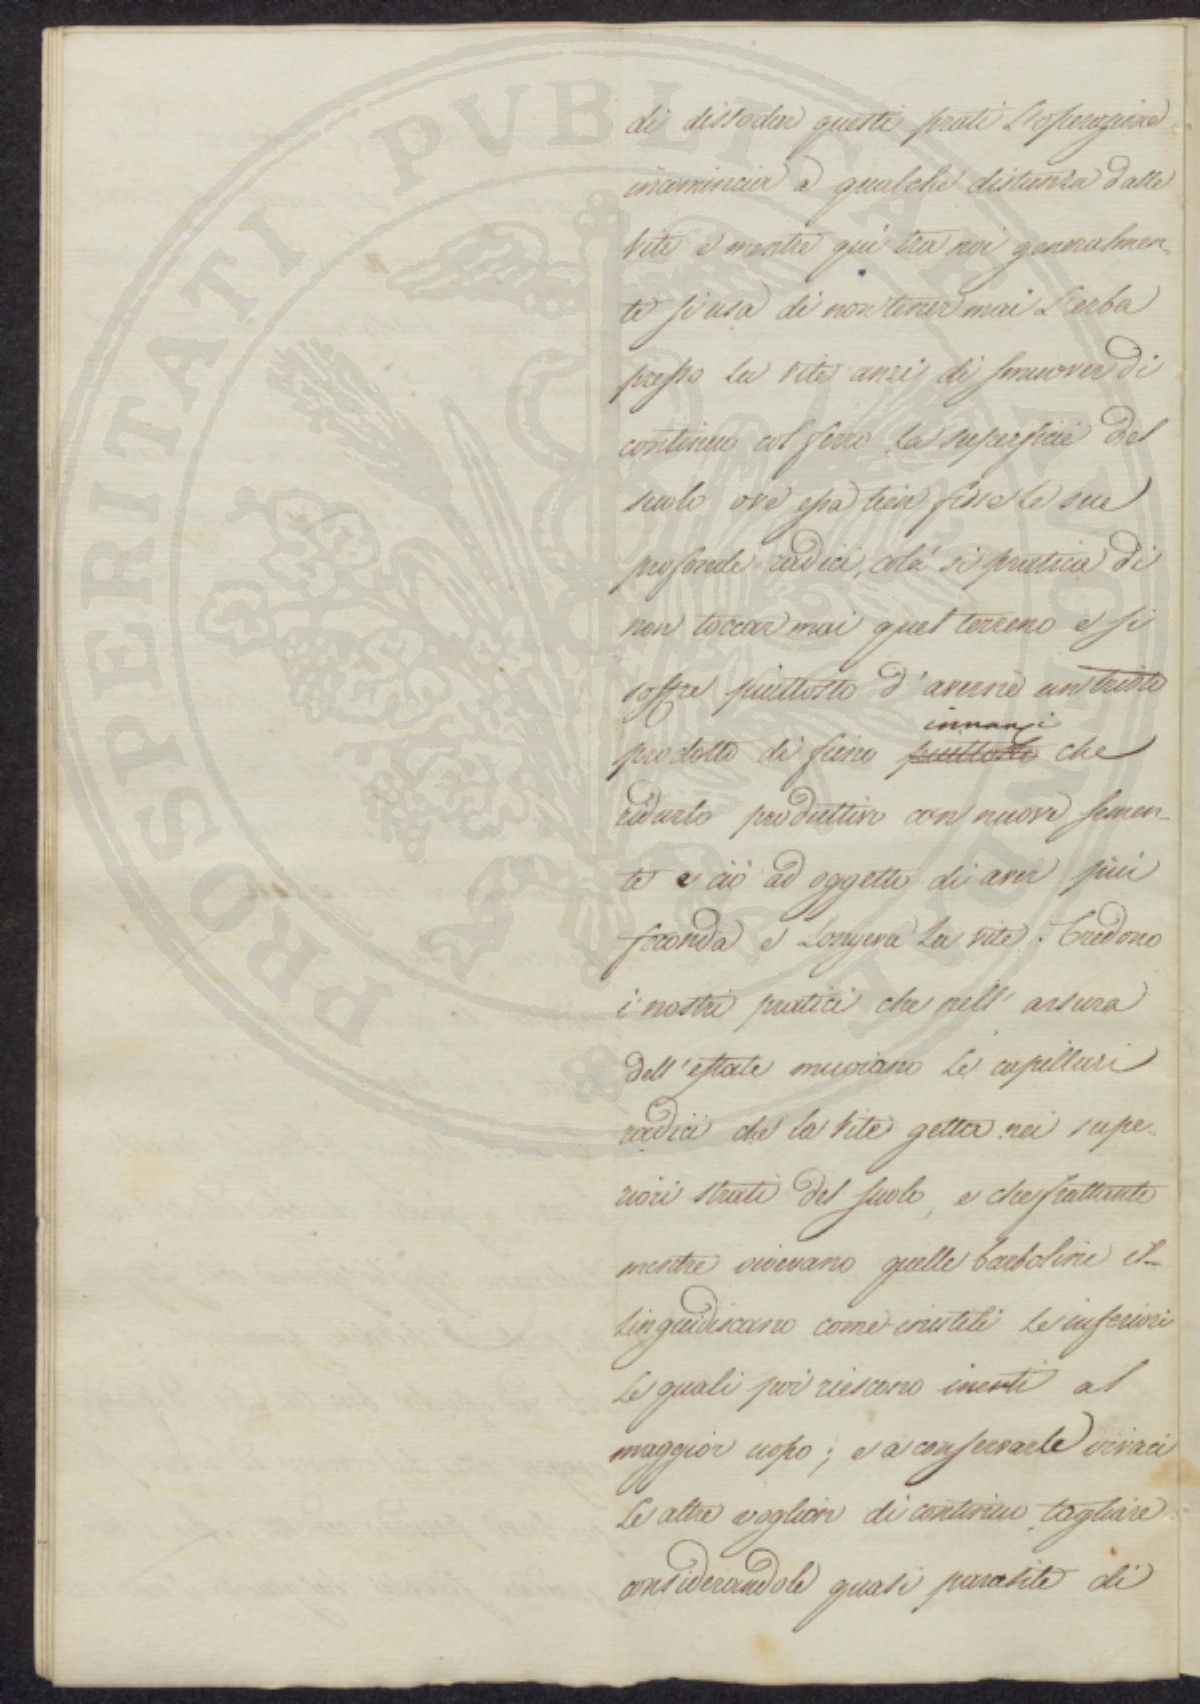 di dissodar questi prati l'operazione
incominciar a qualche distanza dalle
vite e mentre qui tra noi generalmen-
te si usa di non tener mai l'erba
presso la vite anzi di smuover di
continuo col ferro la superficie del
suolo ove essa tien fisse le sue
profonde radici, colà si pratica di
non toccar mai quel terreno e si
soffre piuttosto d'averne un triste
innanzi
prodotto di fieno piuttosto che
ridurlo produttivo con nuova semen-
te e ciò ad oggetto di aver più
feconda e longeva la vite. Credono
i nostri pratici che nell'arsura
dell'estate muoiano le capillari
radici che la vite getta nei supe-
riori strati del suolo, e che frattanto
mentre vivevano quelle barboline il-
linguidiscano come inutili le inferiori
le quali poi riescono inerti al
maggior uopo; e a conservarle vivaci
le altre voglion di continuo tagliare
considerandole quasi parasite di
PROSPERITATI PVBLICAE AVGENDAE